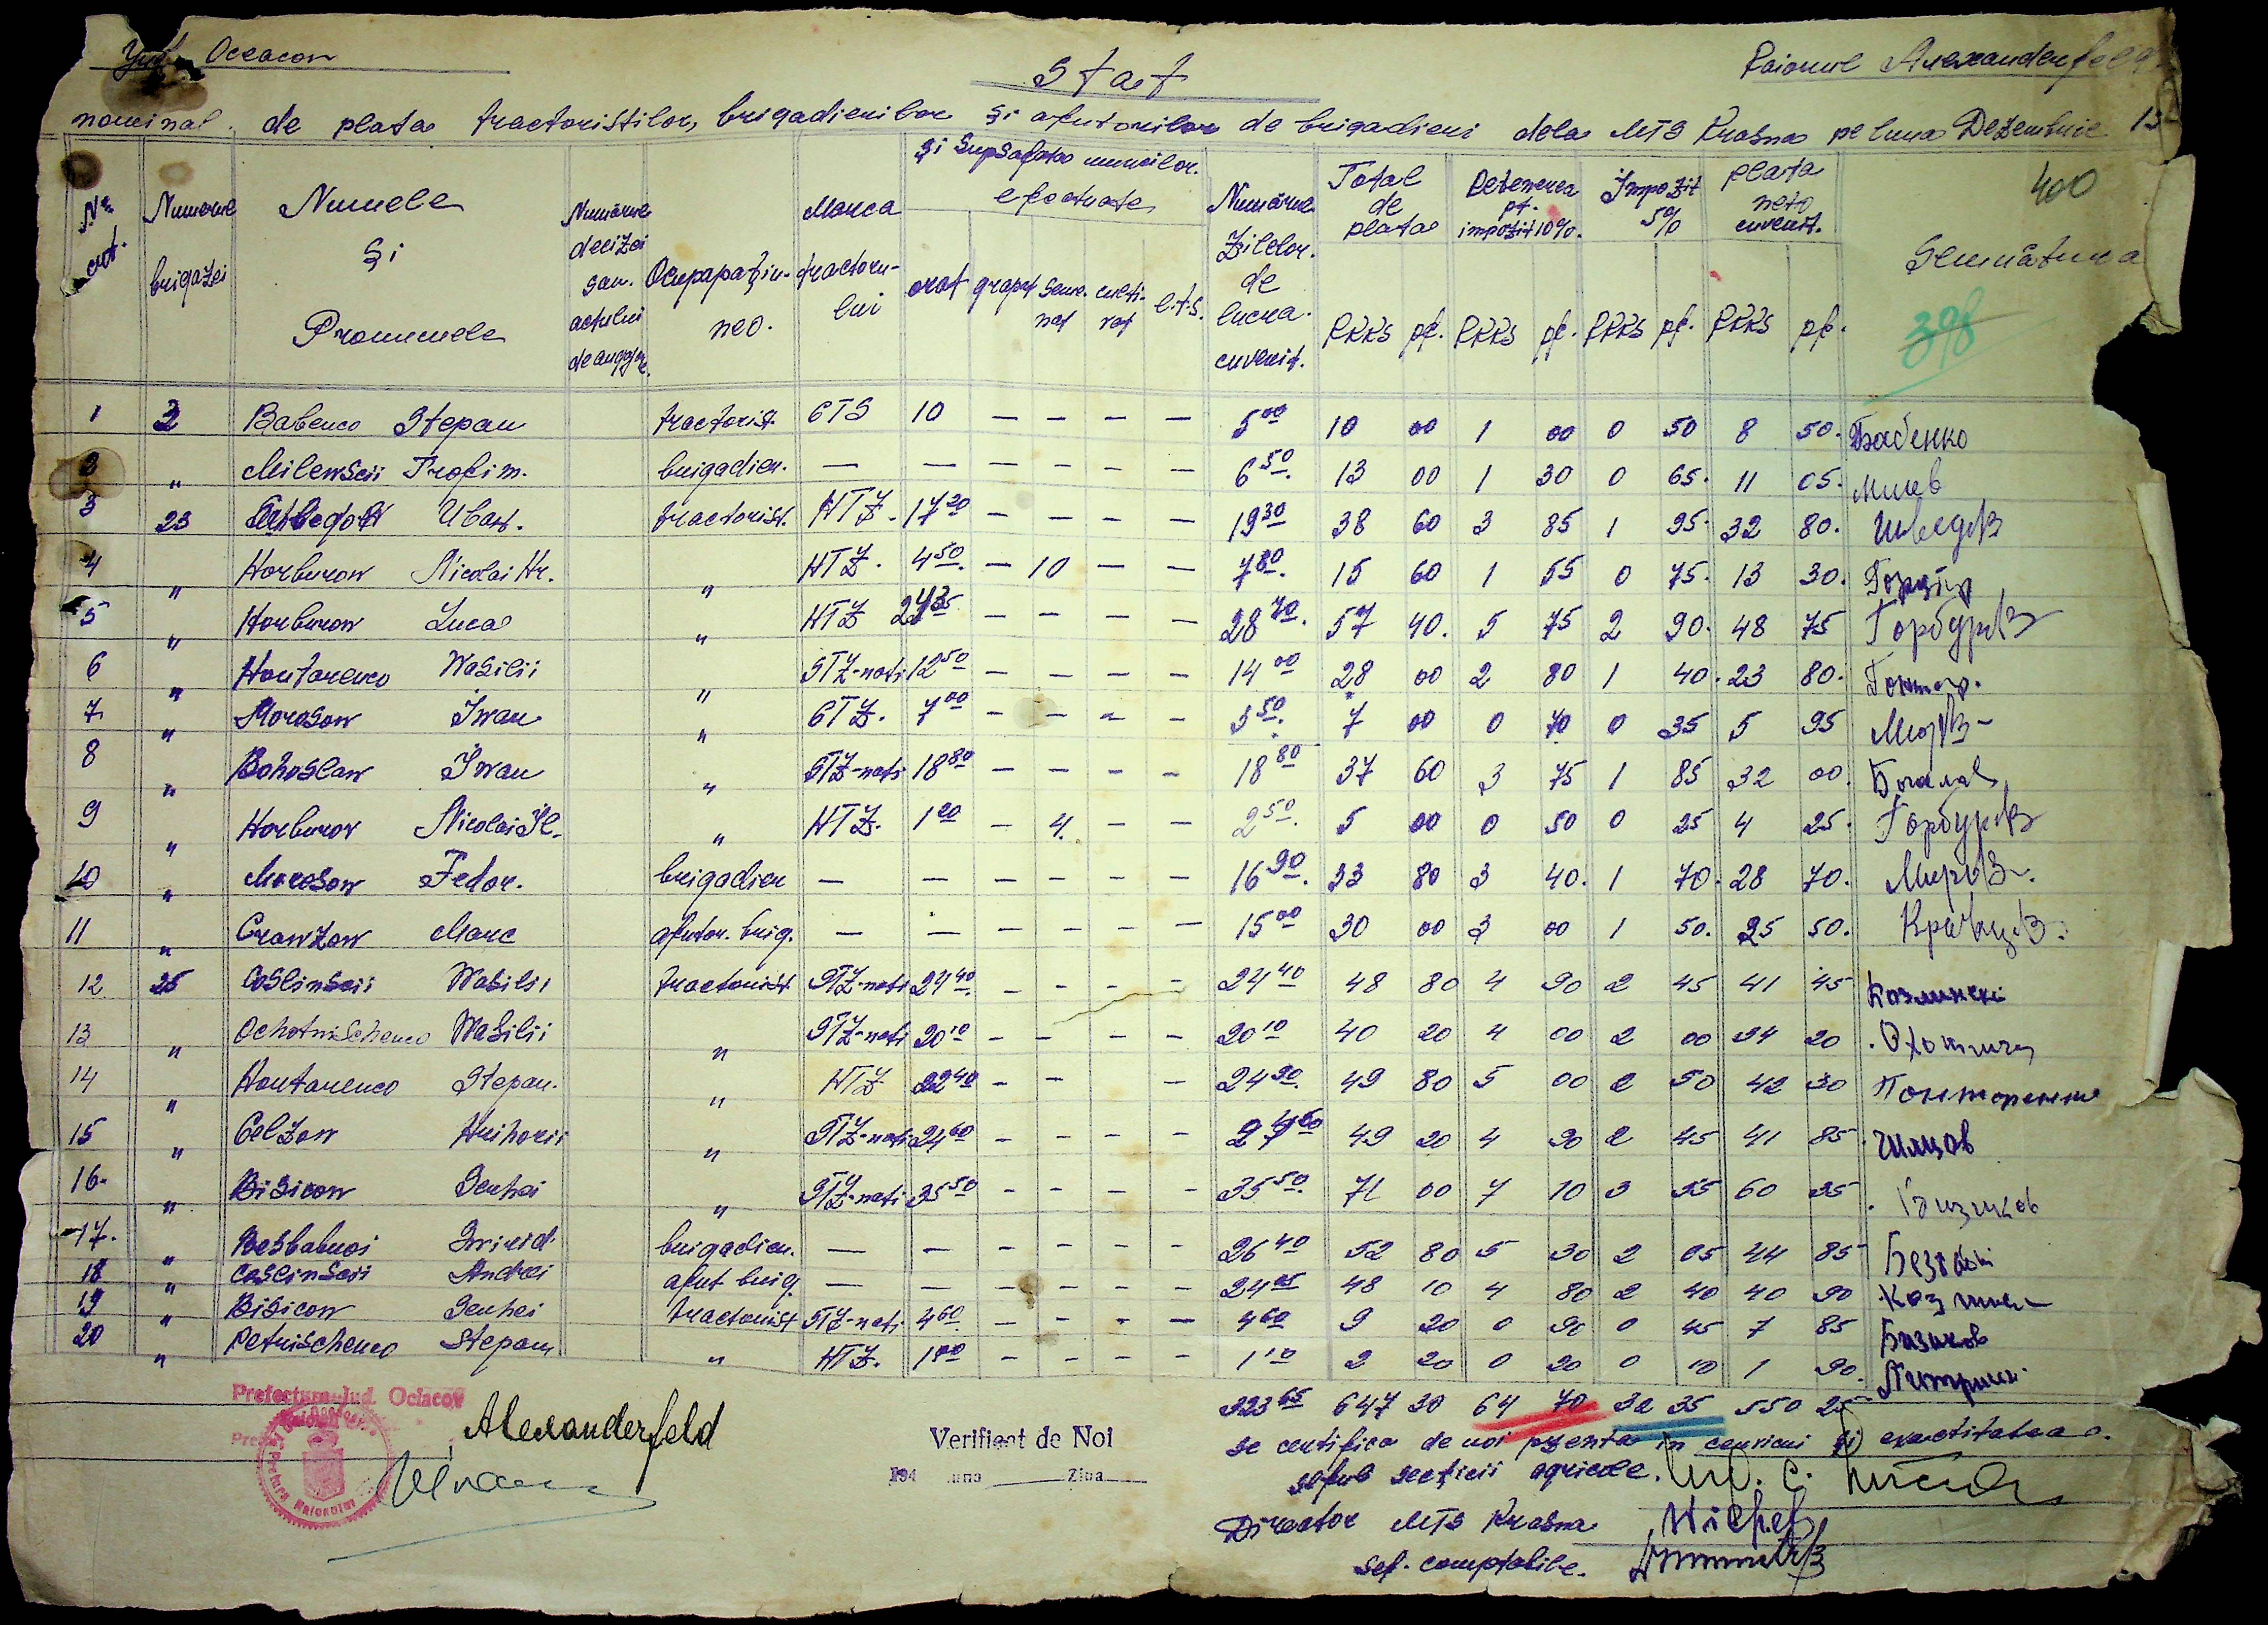 Jud. Oceacov
Raionul Alexanderfeld
Stat
nominal de plata tractoristilor, brigadierilor și ajutorilor de brigadieri dela MTS Krasna pe luna Dezembrie 19
400
398
Nr. crt.
Numărul brigăzei
Numele și Pronumele
Numărul decizei sau actului de angajare.
Ocupapaţiu-nea.
Marca tractoru-lui
și Supsafața muncilor. efectuate
arat grapat semă-nat culti-vat e.t.s.
Numărul Zilelor. de lucru. cuvenit.
Total de plata RKKS pf.
Retenerea pt. impozit 10%. RKKS pf.
Impozit 5% RKKS pf.
plata neto cuvenit. RKKS pf.
Semnătura
1 2 Babenco Stepan tractorist. STS 10 — — — — 5 00 10 00 1 00 0 50 8 50. Бабенко
2 " Milewscii Trofim. brigadier. — — — — — — 6 50. 13 00 1 30 0 65. 11 05.
3 23 Ivan. tractorist. HTZ. 17 20 — — — — 19 30 38 60 3 85 1 95. 32 80. Шведов
4 " Horburow Nicolai Hr. " HTZ. 4 50. — 10 — — 7 80. 15 60 1 55 0 75. 13 30.
5 " Horburow Luca " HTZ — — — — 28 70. 57 40. 5 75 2 90. 48 75 Горбуров
6 " Hontarenco Wasilii " STZ-nati 12 50 — — — — 14 00 28 00 2 80 1 40. 23 80.
7. " Morosow Iwan " STZ. 7 00 — — — — 3 50. 7 00 0 70 0 35 5 95
8 " Bohoslaw Iwan " STZ-nati 18 80 — — — — 18 80 37 60 3 75 1 85 32 00.
9 " Horburov Nicolai Il. " HTZ. 1 20 — 4. — — 2 50. 5 00 0 50 0 25 4 25. Горбуров
10 " Morosow Fedor. brigadier — — — — — — 16 90. 33 80 3 40. 1 70. 28 70.
11 " Crawzow Marc ajutor. brig. — — — — — — 15 00 30 00 3 00 1 50. 25 50. Кравцов.
12 25 Coslinscii Wasilii tractorist STZ-nati 24 40. — — — — 24 40 48 80 4 90 2 45 41 45 Козлинскі
13 " Ochotnischenco Wasilii " STZ-nati 20 10 — — — — 20 10 40 20 4 00 2 00 34 20
14 " Hontarenco Stepan. " HTZ 22 40 — — — 24 90. 49 80 5 00 2 50 42 30
15 " Celzow Hrihorii " STZ-nati 24 60 — — — — 24 60 49 20 4 90 2 45 41 85.
16. " Bisicow Serhei " STZ-nati 35 50 — — — — 35 50. 71 00 7 10 3 55 60 35 Бизиков
17. " Besbabnoi Swirid brigadier. — — — — — — 26 40 52 80 5 30 2 65 44 85
18 " Coslinscii Andrei ajut brig. — — — — — — 24 05 48 10 4 80 2 40 40 90
19 " Bisicow Serhei tractorist STZ-nati 4 60 — — — — 4 60 9 20 0 90 0 45 7 85 Бизиков
20 " Petrischenco Stepan " HTZ. 1 00 — — — — 1 10 2 20 0 20 0 10 1 90.
323 65 647 30 64 70 32 35 550 25
Prefectura Jud. Ociacov
Alexanderfeld
Verificat de Noi
194 luna Ziua
Se certifica de noi și exactitatea.
Șeful secției agricole.
Director MTS Krasna
Sef. comptabile.